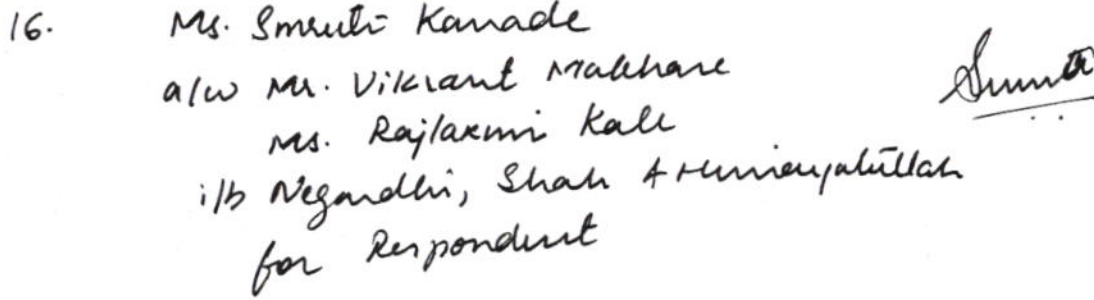 16. Ms. Smruti Kanade
a/w Mr. Vikrant Malkhare
Ms. Rajlaxmi Kale
i/b Negandhi, Shah & Himayatullah
for Respondent